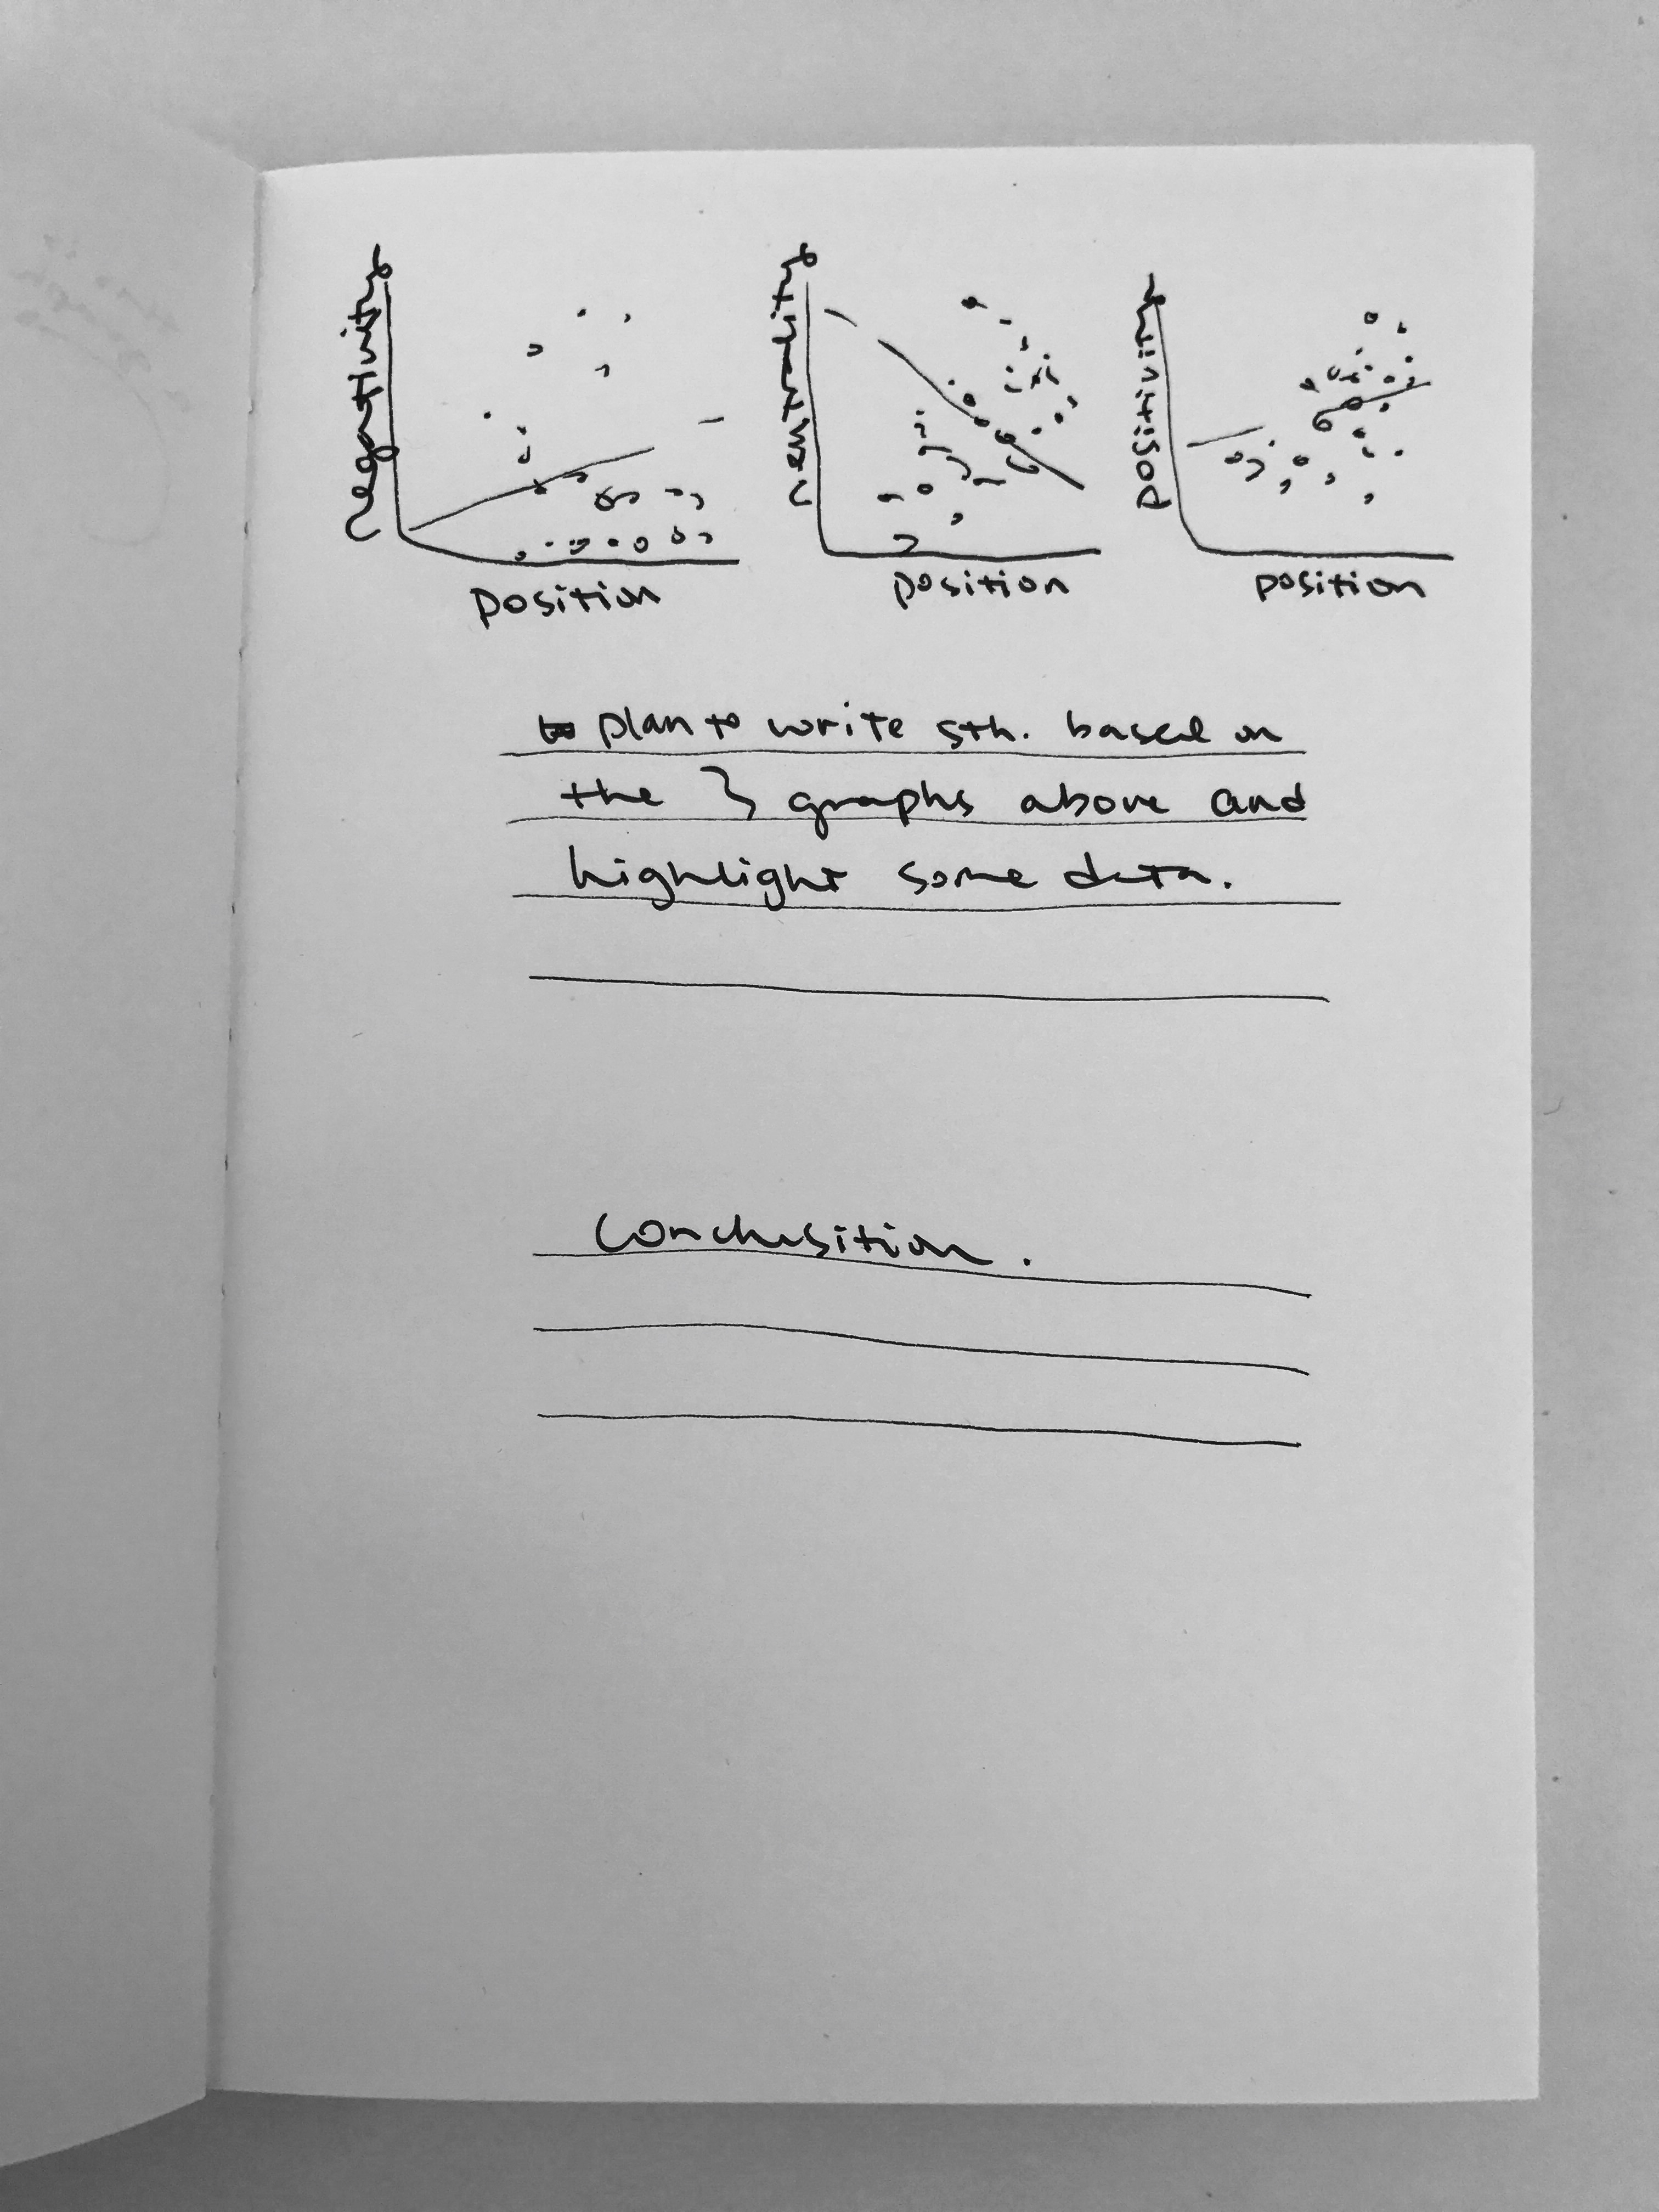 negativity
neutrality
positivity
position
position
position
plan to write sth. based on
the 3 graphs above and
highlight some data.
Conclusition.